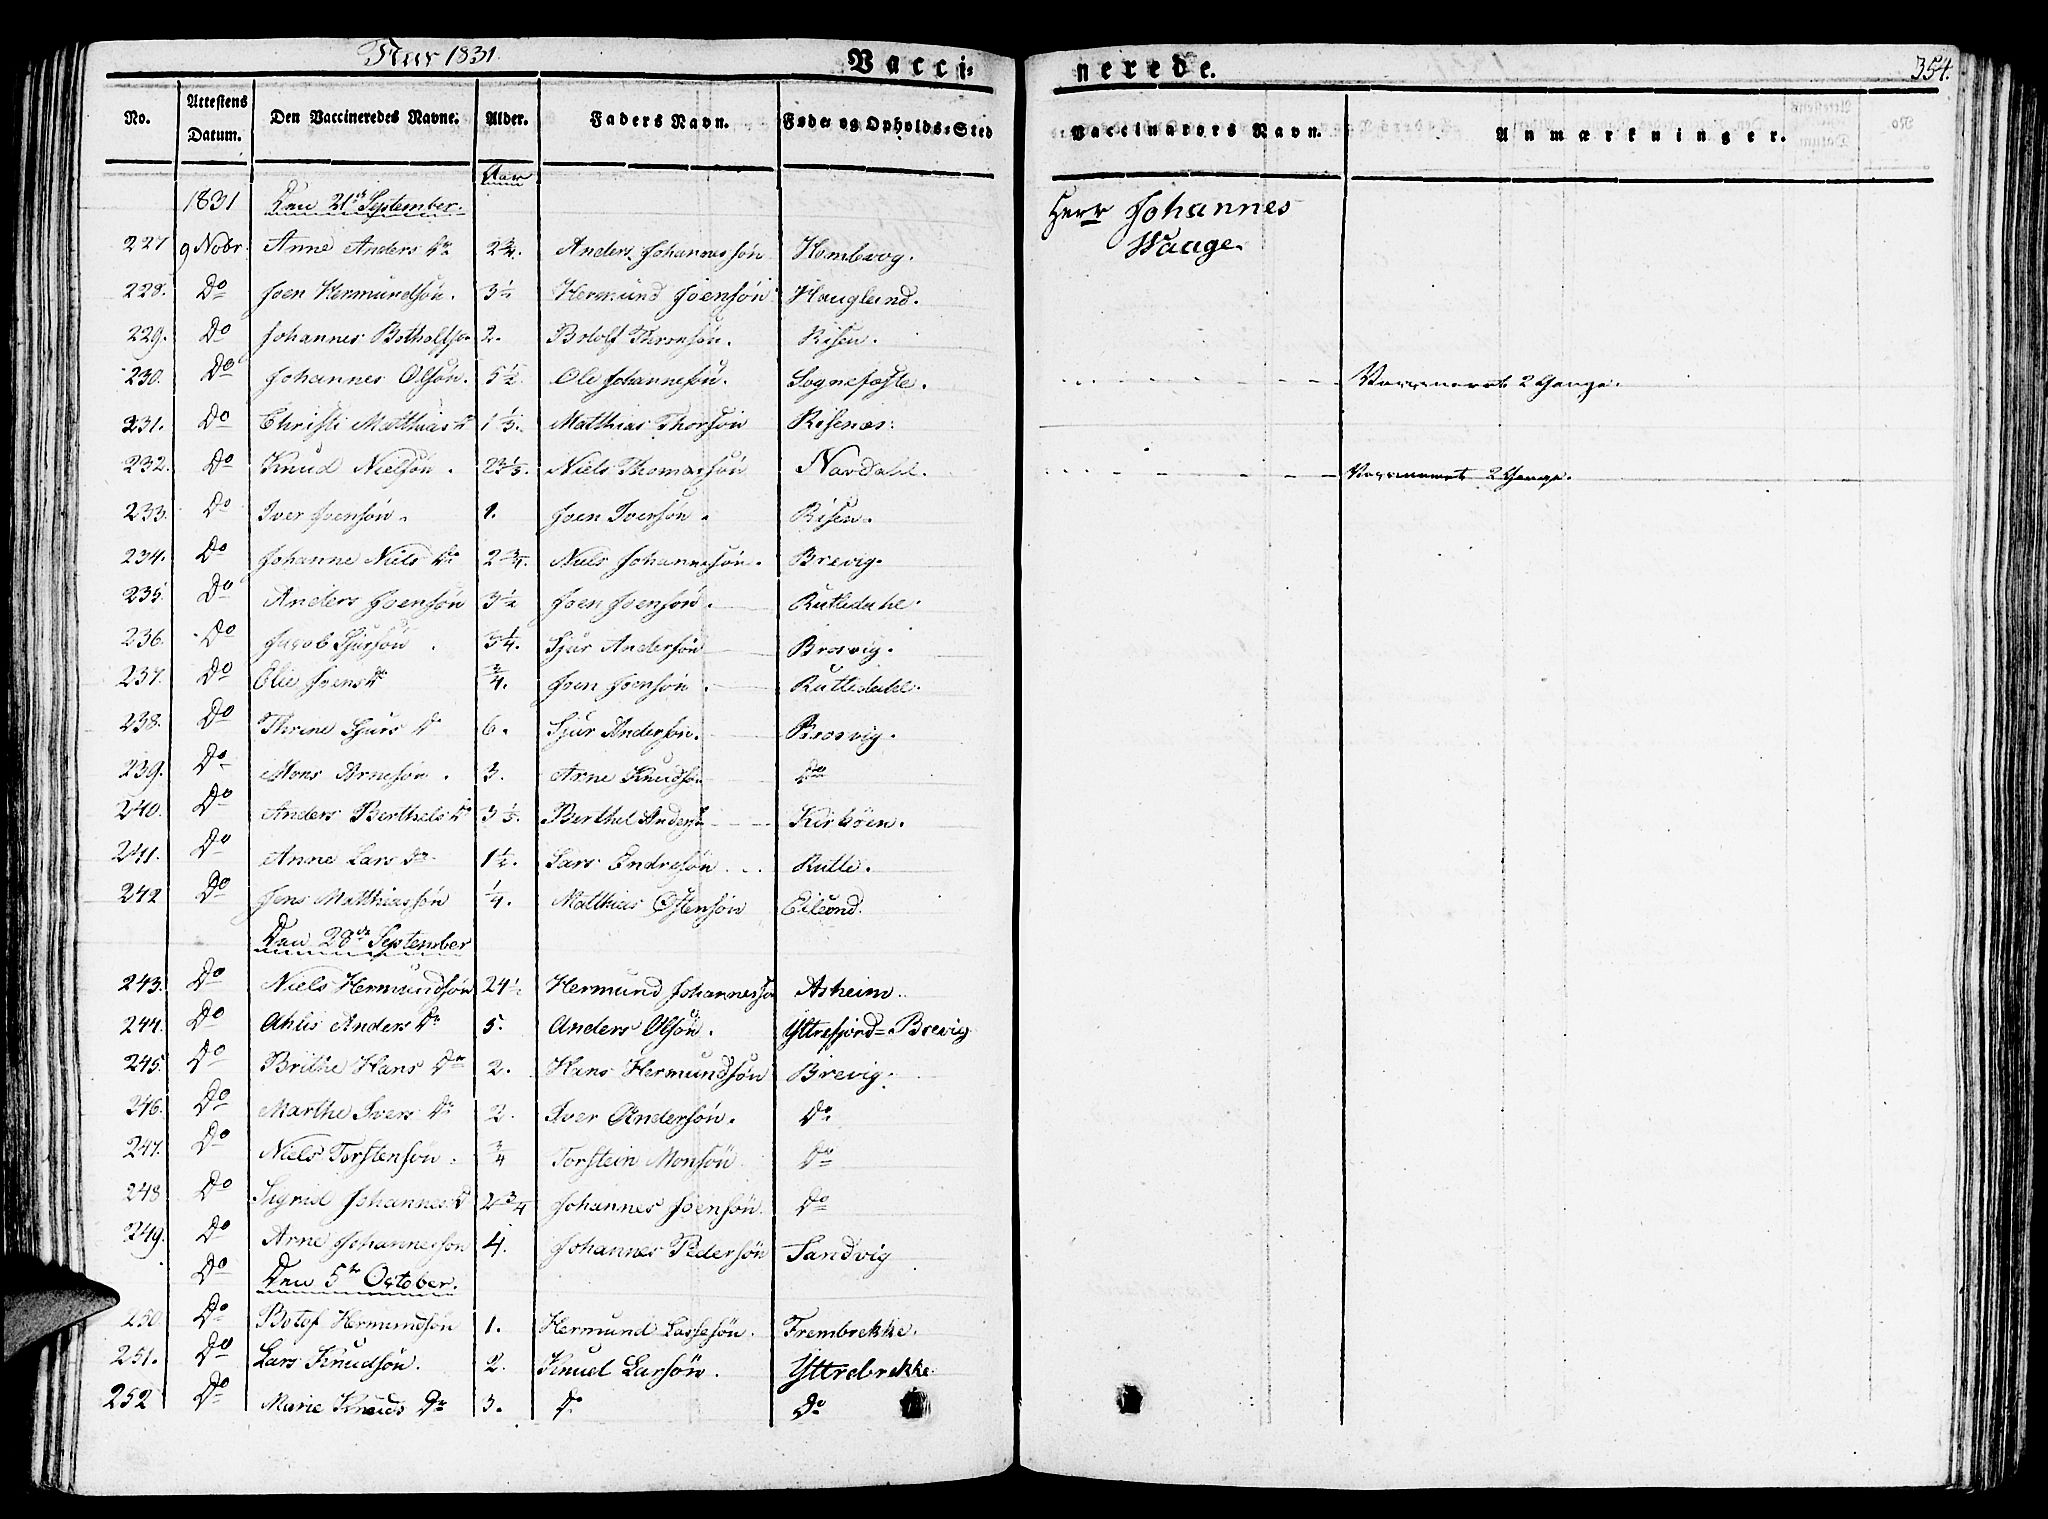 Aar 1831.
Vacci-
nerede.
354.
No. Attestens Datum. Den Vaccineredes Navne. Alder. Faders Navn. Føde- og Opholds-Sted
Vaccinateurs Navn. Anmærkninger.
Aar
1831 Den 21de September.
Herr Johannes
Waage.
227 9 Nobr. Anne Anders Dr 2 3/4. Anders Johannessøn
228. Do Joen Hermundsøn. 3 1/2 Hermund Joensøn Hauglund.
229. Do Johannes 2. Botolf Risen.
230. Do Johannes Olsøn. 5 1/2. Ole Johannesøn. Sognefæste. 2 Gange.
231. Do Christi Matthias Dr 1 1/3. Matthias Thorsøn Risenæs.
232. Do Knud Nielsøn. 23 1/3. Niels Thomassøn Nordahl. 2 Gange.
233. Do Iver Joensøn. 1. Joen Iversøn. Risen.
234. Do Johanne Niels Dr 2 3/4. Niels Johannesøn. Brevig.
235. Do Anders Joensøn 3 1/2 Joen Joensøn. Rutledahl.
236. Do Jacob Sjursøn. 3 1/4. Sjur Andersøn Brosvig.
237. Do Olie Joens Dr 3/4. Joen Joensøn. Rutledahl.
238. Do Thrine Sjurs Dr 6. Sjur Andersøn. Brosvig.
239. Do Mons Arnesøn. 3. Arne Knudsøn Do
240. Do Anders Berthels Dr 3 1/3. Berthel Anders
241. Do Anne Lars Dr. 1 1/2. Lars Endresøn Rutle.
242 Do Jens Matthiassøn 1/4. Matthias Østensøn
Den 28de September
243. Do Niels Hermundsøn 24 1/2 Hermund Johannessøn Asheim.
244. Do Ahlis Anders Dr 5. Anders Olsøn. Yttrefjord=Brevig
245. Do Brithe Hans Dr 2. Hans Hermundsøn Brevig.
246. Do Marthe Ivers Dr 2. Iver Andersøn. Do
247. Do Niels Torstensøn. 3/4 Torstein Monsøn. Do
248 Do Sigrid Johannes Dr 2 3/4 Johannes Joensøn. Do
249. Do Arne Johannesson 4. Johannes Pedersøn Sandvig
Do Den 5te October.
250. Do Botof Hermundsøn 1. Hermund Lassesøn. Frembrekke.
251. Do Lars Knudsøn. 2. Knud Larsøn. Yttrebrekke.
252 Do Marie Knuds Dr 3. Do Do